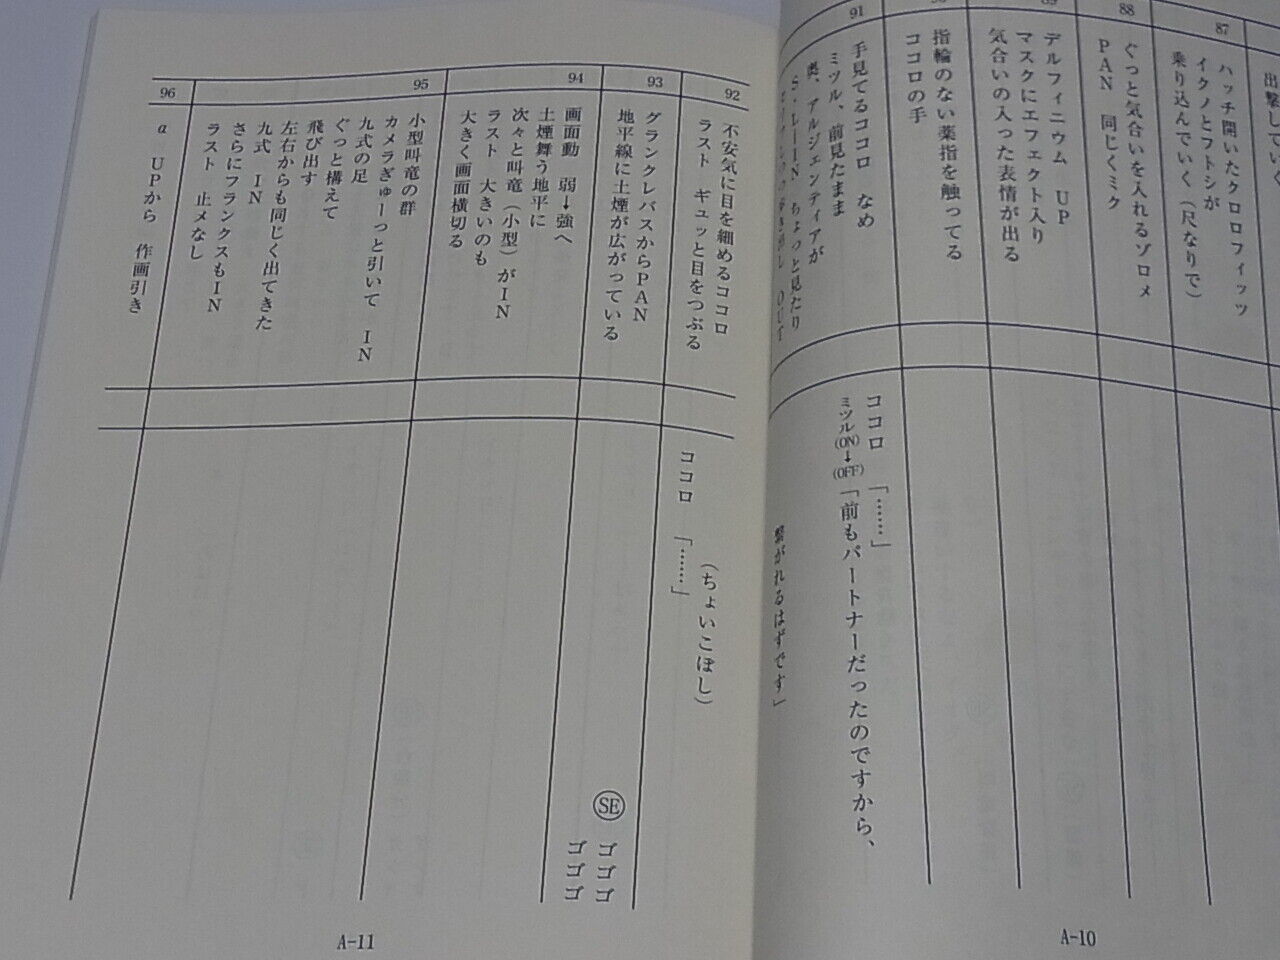 出撃して
87
ハッチ開いたクロロフィッツ
イクノとフトシが
乗り込んでいく（尺なりで）
88
ぐっと気合いを入れるゾロメ
PAN　同じくミク
89
デルフィニウム　UP
マスクにエフェクト入り
気合いの入った表情が出る
指輪のない薬指を触ってる
ココロの手
91
手見てるココロ　なめ
ミツル、前見たまま
奥、アルジェンティアが
S・L－IN　ちょっと見たり
OUT
ココロ　「……」
ミツル(ON)→(OFF)「前もパートナーだったのですから、
繋がれるはずです」
A-10
92
不安気に目を細めるココロ
ラスト　ギュッと目をつぶる
（ちょいこぼし）
ココロ　「……」
93
グランクレバスからPAN
地平線に土煙が広がっている
SE　ゴゴゴ
94
画面動　弱→強へ
土煙舞う地平に
次々と叫竜（小型）がIN
ラスト　大きいのも
大きく画面横切る
ゴゴゴ
95
小型叫竜の群
カメラぎゅーっと引いて　IN
九式の足
ぐっと構えて
飛び出す
左右からも同じく出てきた
九式　IN
さらにフランクスもIN
ラスト　止メなし
96
a　UPから　作画引き
A-11